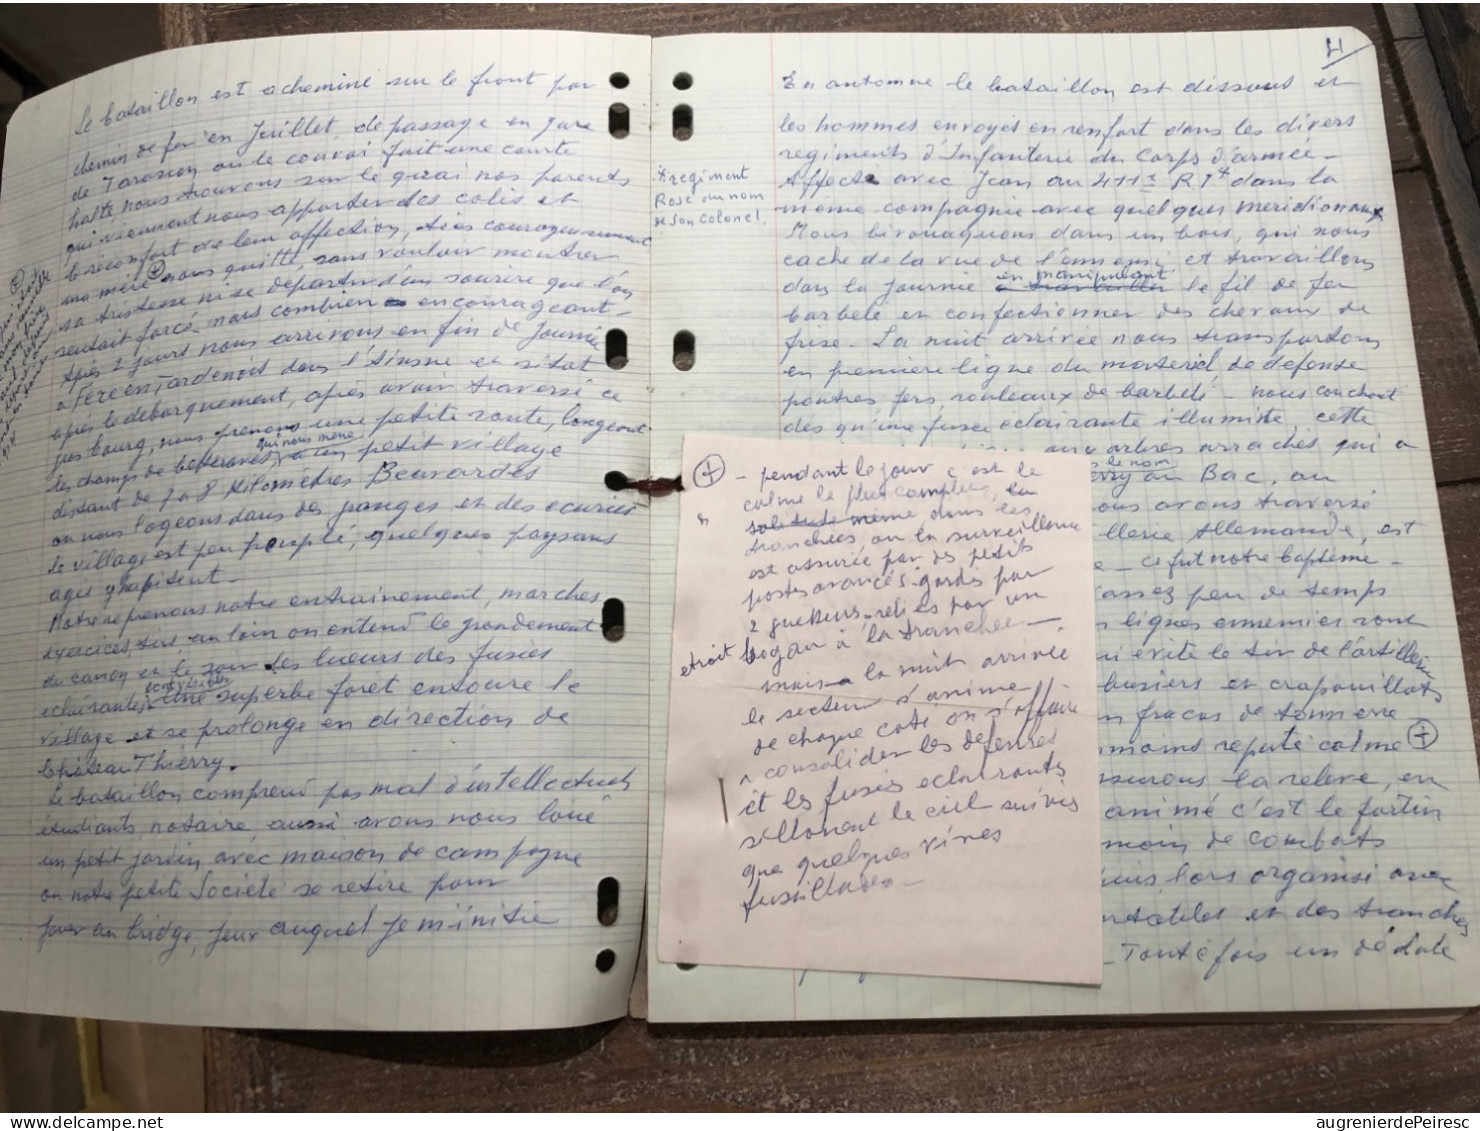 Le bataillon est acheminé sur le front par
chemin de fer en Juillet, de passage en gare
de Tarascon ou le convoi fait une courte
halte, nous trouvons sur le quai nos parents
qui viennent nous apporter des colis et
le réconfort de leur affection, très courageusement
ma mère nous quitte, sans vouloir montrer
sa tristesse ni se départir d'un sourire que l'on
sentait forcé mais combien encourageant -
Après 2 jours nous arrivons en fin de Journée
a Fère en Tardenois dans l'Aisne et sitot
après le débarquement, après avoir traversé ce
gros bourg, nous prenons une petite route, longeant
les champs de betteraves, qui nous mène a un petit village
distant de 7 a 8 Kilomètres Beuvardes
ou nous logeons dans des granges et des ecuries
le village est peu peuplé, quelques paysans
agés y habitent -
Nous reprenons notre entrainement, marches
exercices, tirs, au loin on entend le grondement
du canon et le soir les lueurs des fusées
eclairantes, une superbe foret entoure le
village et se prolonge en direction de
Château Thierry.
Le bataillon comprend pas mal d'intellectuels
étudiants, notaire, aussi avons nous loué
un petit jardin avec maison de campagne
ou notre petite Société se retire pour
jouer au bridge, jeux auquel je m'initie
4
En automne le bataillon est dissout et
les hommes envoyés en renfort dans les divers
regiments d'Infanterie du Corps d'armée -
Affecté avec Jean au 411e RI* dans la
même compagnie avec quelques meridionaux
* regiment
Rose du nom
de son colonel.
Nous bivouaquons dans un bois, qui nous
cache de la vue de l'ennemi et travaillons
dans la journée en manipulant le fil de fer
barbelé et confectionner des chevaux de
frise - La nuit arrivée nous transportons
en première ligne du matériel de défense
poutres fers rouleaux de barbelé - nous couchant
dès qu'une fusée eclairante illumine, cette
aux arbres arrachés qui a
le nom
erry au Bac, ou
ous avons traversé
llerie Allemande, est
e - ce fut notre baptème -
assez peu de temps
s lignes ennemies sont
ui évite le tir de l'artillerie
busiers et crapouillots
n fracas de tonnerre
moins reputé calme (+)
ssurons la releve, en
animé c'est le fortin
moin de combats
puis, lors organisé avec
ntables et des tranchés
- Toutefois un dédale
(+) - pendant le jour c'est le
calme le plus complet, la
solitude même dans les
tranchées ou la surveillance
est assurée par des petits
postes avancés gardés par
2 guetteurs reliés par un
etroit boyau à la tranchée -
mais la nuit arrivée
le secteur s'anime
de chaque coté on s'affaire
a consolider les defenses
et les fusées eclairants
sillonent le ciel suivies
que quelques vives
fussillades -
augrenierdePeiresc